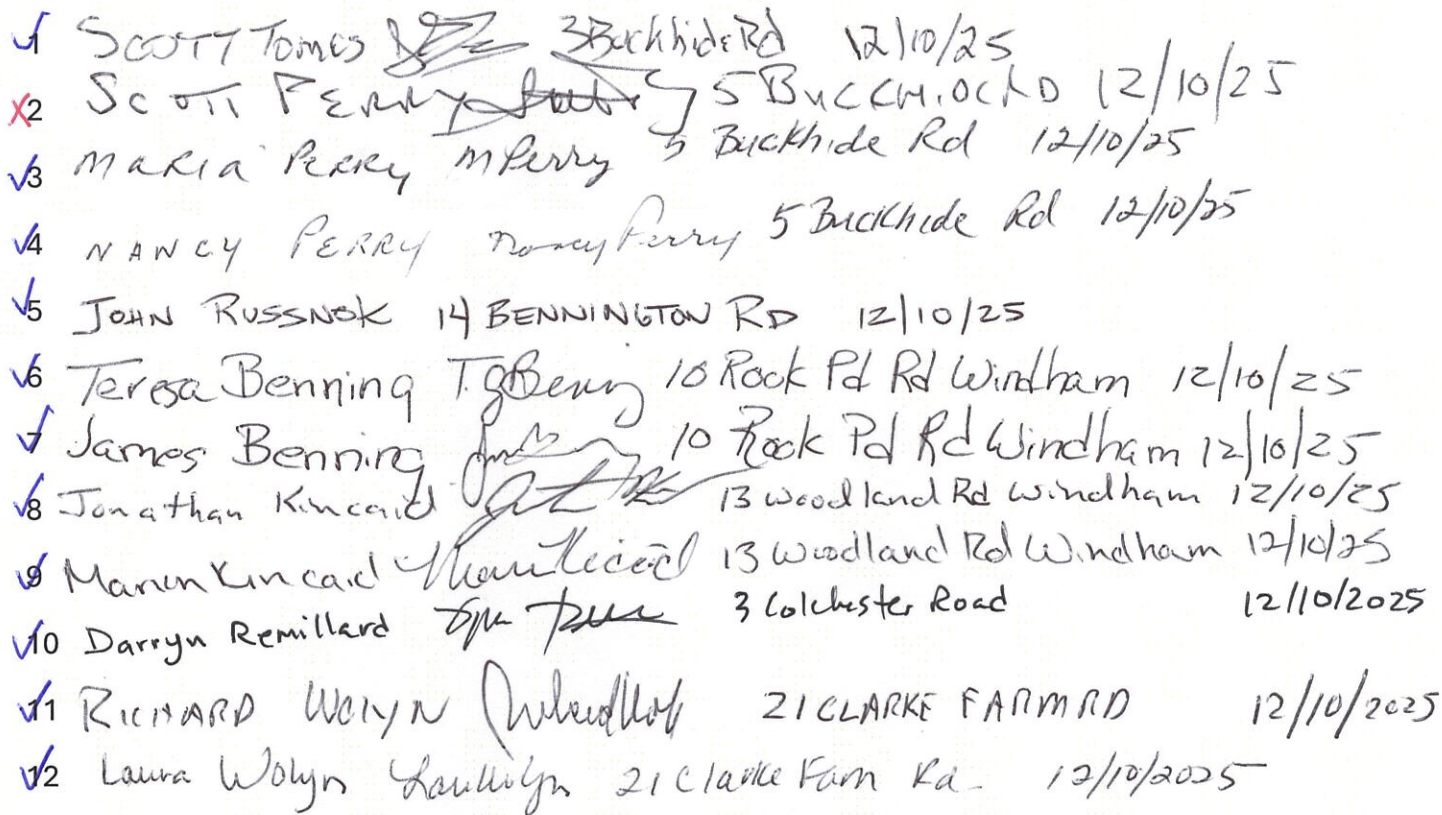 1 SCOTT Tomes 3 Buckhide Rd 12/10/25
2 SCOTT PERRY 5 12/10/25
3 MARIA PERRY MPerry 5 Buckhide Rd 12/10/25
4 NANCY PERRY Nancy Perry 5 Buckhide Rd 12/10/25
5 JOHN RUSSNOK 14 BENNINGTON RD 12/10/25
6 Teresa Benning 10 Rock Pd Rd Windham 12/10/25
7 James Benning 10 Rock Pd Rd Windham 12/10/25
8 Jonathan Kincaid 13 Woodland Rd Windham 12/10/25
9 Kincaid 13 Woodland Rd Windham 12/10/25
10 Darryn Remillard 3 Colchester Road 12/10/2025
11 RICHARD WOLYN 21 CLARKE FARM RD 12/10/2025
12 Laura Wolyn 21 Clarke Farm Rd 12/10/2025